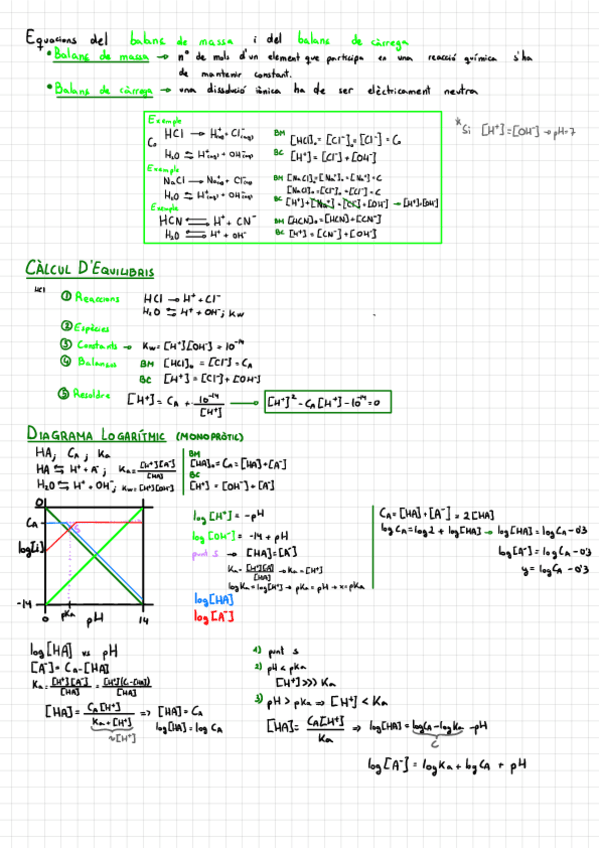 Equacions del balanç de massa i del balanç de càrrega
• Balanç de massa → nº de mols d'un element que participa en una reacció química s'ha
de mantenir constant.
• Balanç de càrrega → una dissolució iònica ha de ser elèctricament neutra
Exemple
C₀ HCl → H⁺(aq) + Cl⁻(aq) BM [HCl]₀ = [Cl⁻]₀ = [Cl⁻] = C₀
H₂O ⇆ H⁺(aq) + OH⁻(aq) BC [H⁺] = [Cl⁻] + [OH⁻]
* Si [H⁺]=[OH⁻] → pH=7
Exemple
NaCl → Na⁺(aq) + Cl⁻(aq) BM [NaCl]₀ = [Na⁺]₀ = [Na⁺] = C
[NaCl]₀ = [Cl⁻]₀ = [Cl⁻] = C
H₂O ⇆ H⁺(aq) + OH⁻(aq) BC [H⁺] + [Na⁺] = [Cl⁻] + [OH⁻] → [H⁺]=[OH⁻]
Exemple
HCN ⇆ H⁺ + CN⁻ BM [HCN]₀ = [HCN] + [CN⁻]
H₂O ⇆ H⁺ + OH⁻ BC [H⁺] = [CN⁻] + [OH⁻]
CÀLCUL D'EQUILIBRIS
HCl
① Reaccions HCl → H⁺ + Cl⁻
H₂O ⇆ H⁺ + OH⁻; Kw
② Espècies
③ Constants → Kw = [H⁺][OH⁻] = 10⁻¹⁴
④ Balanços BM [HCl]₀ = [Cl⁻] = CA
BC [H⁺] = [Cl⁻] + [OH⁻]
⑤ Resoldre [H⁺] = CA + 10⁻¹⁴/[H⁺] → [H⁺]² - CA[H⁺] - 10⁻¹⁴ = 0
DIAGRAMA LOGARÍTMIC (MONOPRÒTIC)
HA; CA; Ka
HA ⇆ H⁺ + A⁻; Ka = [H⁺][A⁻]/[HA]
H₂O ⇆ H⁺ + OH⁻; Kw = [H⁺][OH⁻]
BM
[HA]₀ = CA = [HA] + [A⁻]
BC
[H⁺] = [OH⁻] + [A⁻]
0
CA
log[i]
-14
0 pKa pH 14
S
log[H⁺] = -pH
log[OH⁻] = -14 + pH
punt S → [HA]=[A⁻]
Ka = [H⁺][A⁻]/[HA] → Ka = [H⁺]
logKa = log[H⁺] → pKa = pH → x = pKa
log[HA]
log[A⁻]
CA = [HA] + [A⁻] = 2[HA]
log CA = log2 + log[HA] → log[HA] = log CA - 0'3
log[A⁻] = log CA - 0'3
y = log CA - 0'3
log[HA] vs pH
[A⁻] = CA - [HA]
Ka = [H⁺][A⁻]/[HA] = [H⁺](CA-[HA])/[HA]
[HA] = CA[H⁺]/(Ka + [H⁺]) => [HA] = CA
≈[H⁺] log[HA] = log CA
1) punt S
2) pH < pKa
[H⁺] >>> Ka
3) pH > pKa ⇒ [H⁺] < Ka
[HA] = CA[H⁺]/Ka ⇒ log[HA] = log CA - log Ka - pH
C
log[A⁻] = log Ka + log CA + pH